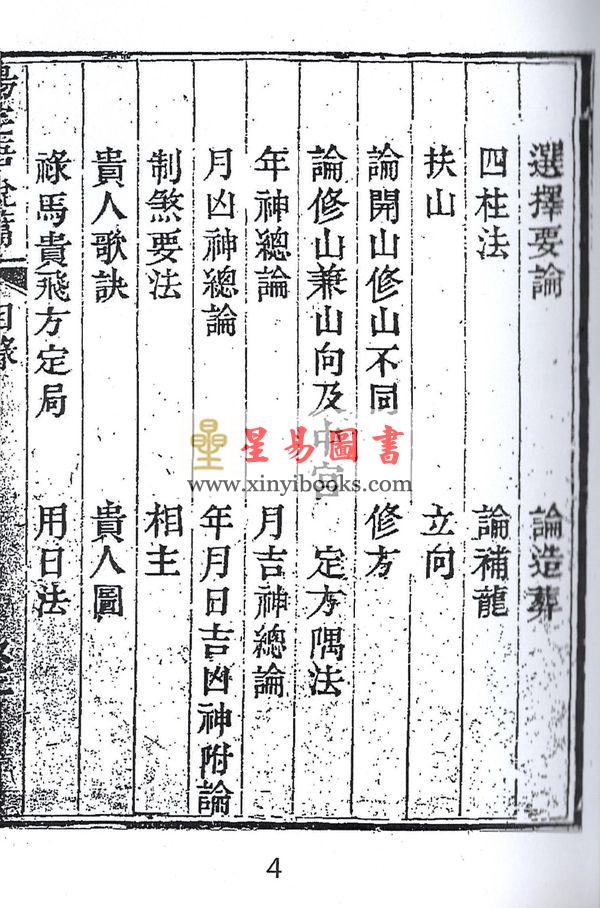 選擇要論 論造葬
四柱法 論補龍
扶山 立向
論開山修山不同 修方
論修山兼山向及中宮 定方隅法
年神總論 月吉神總論
月凶神總論 年月日吉凶神附論
制煞要法 相主
貴人歌訣 貴人圖
祿馬貴飛方定局 用日法
目錄
星易圖書
www.xinyibooks.com
4